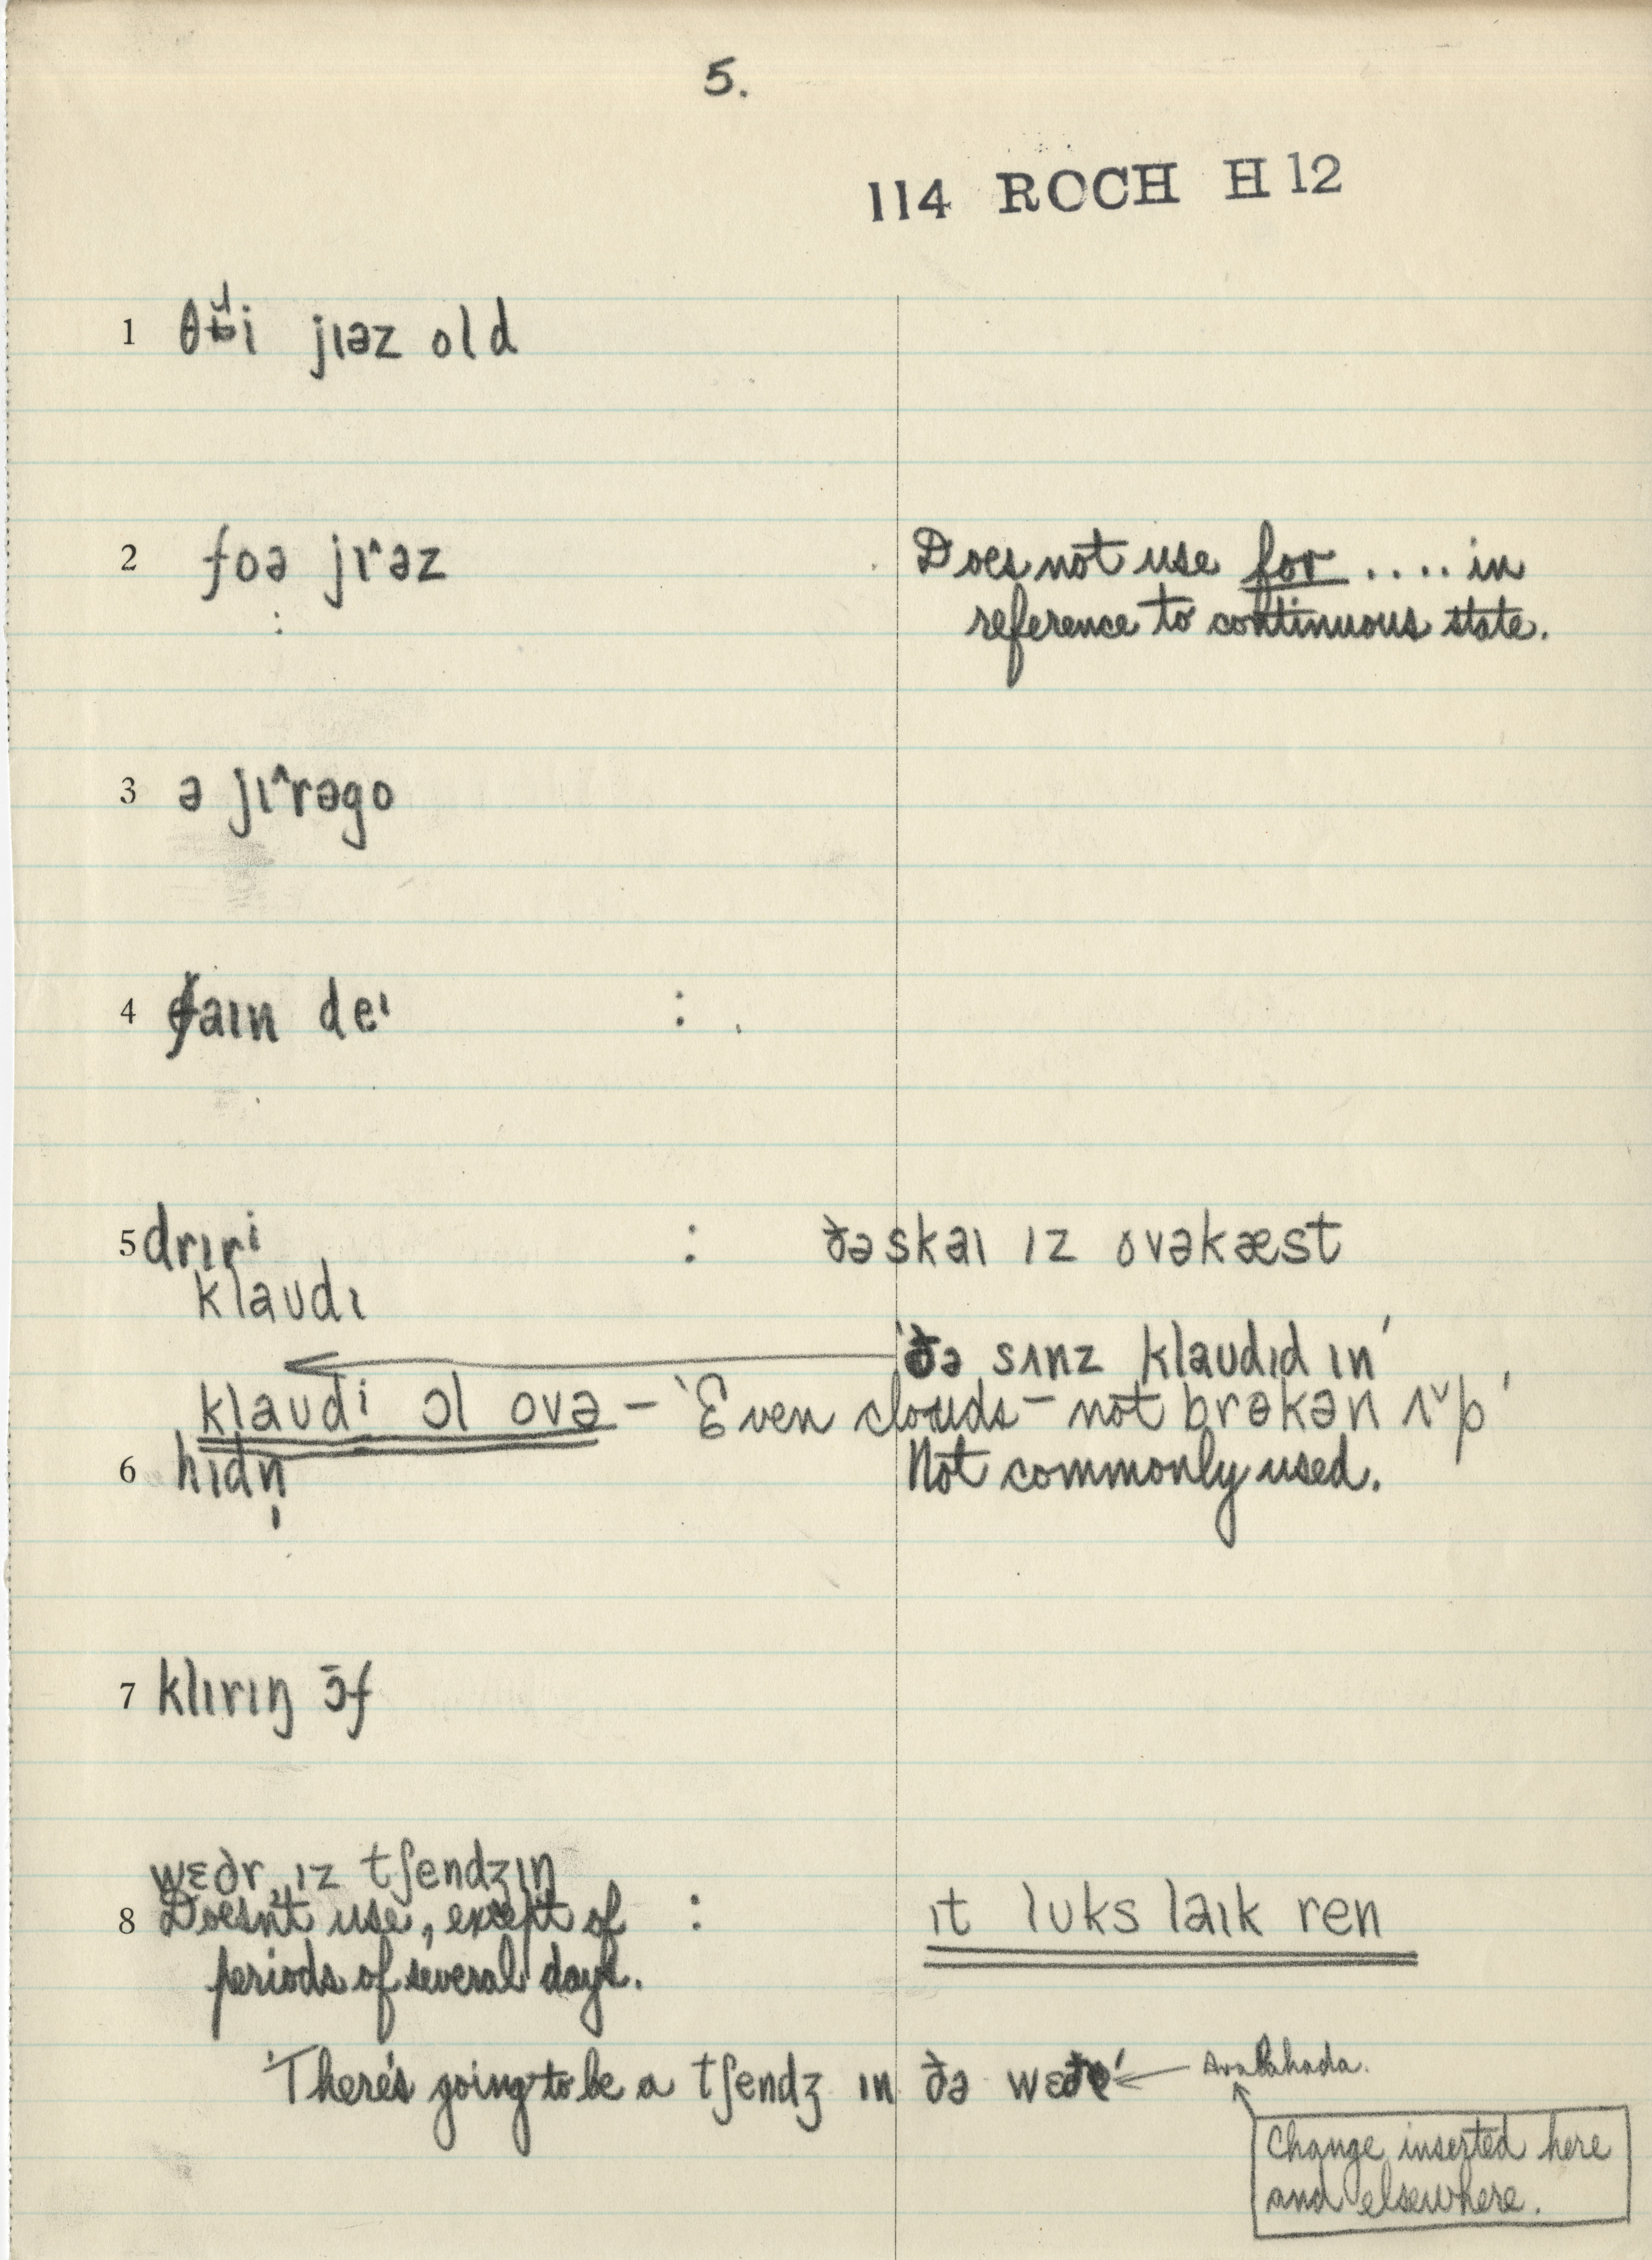 5.
114 ROCH H12
1 jɪəz old
2 foə jɪ˄əz Does not use for .... in
reference to continuous state.
3 ə jɪ˄rəgo
4 faɪn deᶦ :
5 drɪrⁱ : ðə skaɪ ɪz ovəkæst
klaʊdɪ
'ðə sʌnz klaʊdɪd ɪn'
klaʊdi ɔl ovə – 'Even clouds – not brəkən ʌ˅p'
6 hɪdn̩ Not commonly used.
7 klɪrɪŋ ɔ̄f
wɛðr ɪz tʃendʒɪŋ
8 Doesn't use, except of : ɪt lʊks laɪk ren
periods of several days.
'There's going to be a tʃendʒ ɪn ðə
Change inserted here
and elsewhere.